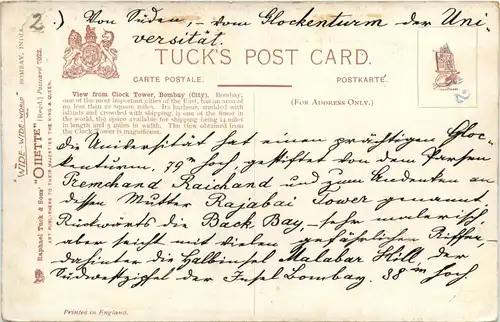 2.) Von Süden, - vom Glockenturm der Uni-
versität.
TUCK'S POST CARD.
CARTE POSTALE. POSTKARTE.
(FOR ADDRESS ONLY.)
View from Clock Tower, Bombay (City). Bombay,
one of the most important cities of the East, has an area of
no less than 22 square miles. Its harbour, studded with
islands and crowded with shipping, is one of the finest in
the world, the space available for shipping being 14 miles
in length and 5 miles in width. The view obtained from
the Clock Tower is magnificent.
"WIDE-WIDE-WORLD" BOMBAY, INDIA.
"OILETTE" [Regd.] Postcard 7022.
Raphael Tuck & Sons'
ART PUBLISHERS TO THEIR MAJESTIES THE KING & QUEEN.
die Universität hat einen prächtigen Gloc-
kenturm, 79 m hoch, gestiftet von dem Parsen
Premchand Raichand und zum Andenken an
dessen Mutter Rajabai Tower genannt.
Rückwärts die Back Bay, - sehr malerisch
aber seicht mit vielen gefährlichen Riffen,
dahinter die Halbinsel Malabar Hill, der
Südwestzipfel der Insel Bombay. 38 m hoch.
Printed in England.